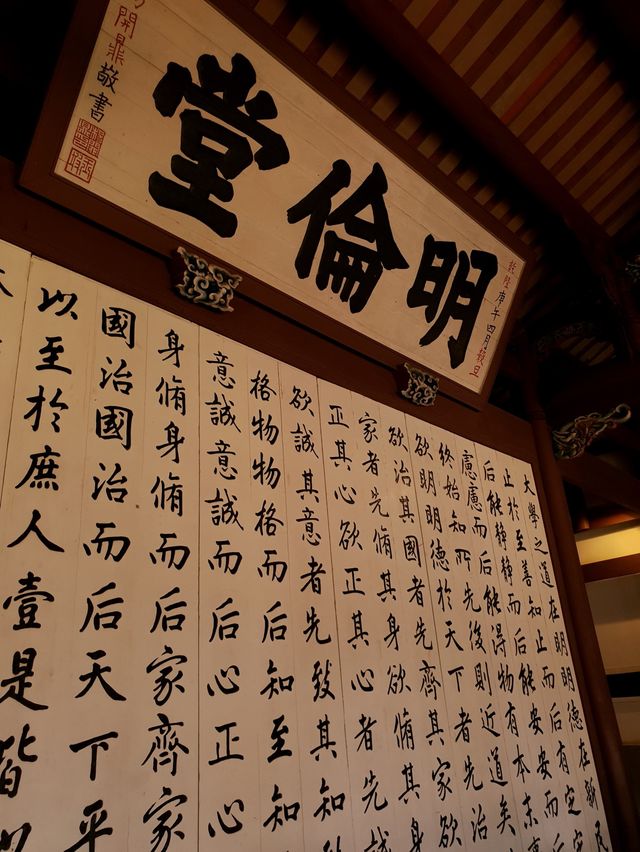 明倫堂
乾隆庚午四月穀旦
開鼎敬書
大學之道在明明德在新民
止於至善知止而后有定
后能靜靜而后能安安而后
慮慮而后能得物有本末事
終始知所先後則近道矣
欲明明德於天下者先治
欲治其國者先齊其家欲
家者先脩其身欲脩其身
正其心欲正其心者先誠
欲誠其意者先致其知
格物物格而后知至知
意誠意誠而后心正心
身脩身脩而后家齊家
國治國治而后天下平
以至於庶人壹是皆以